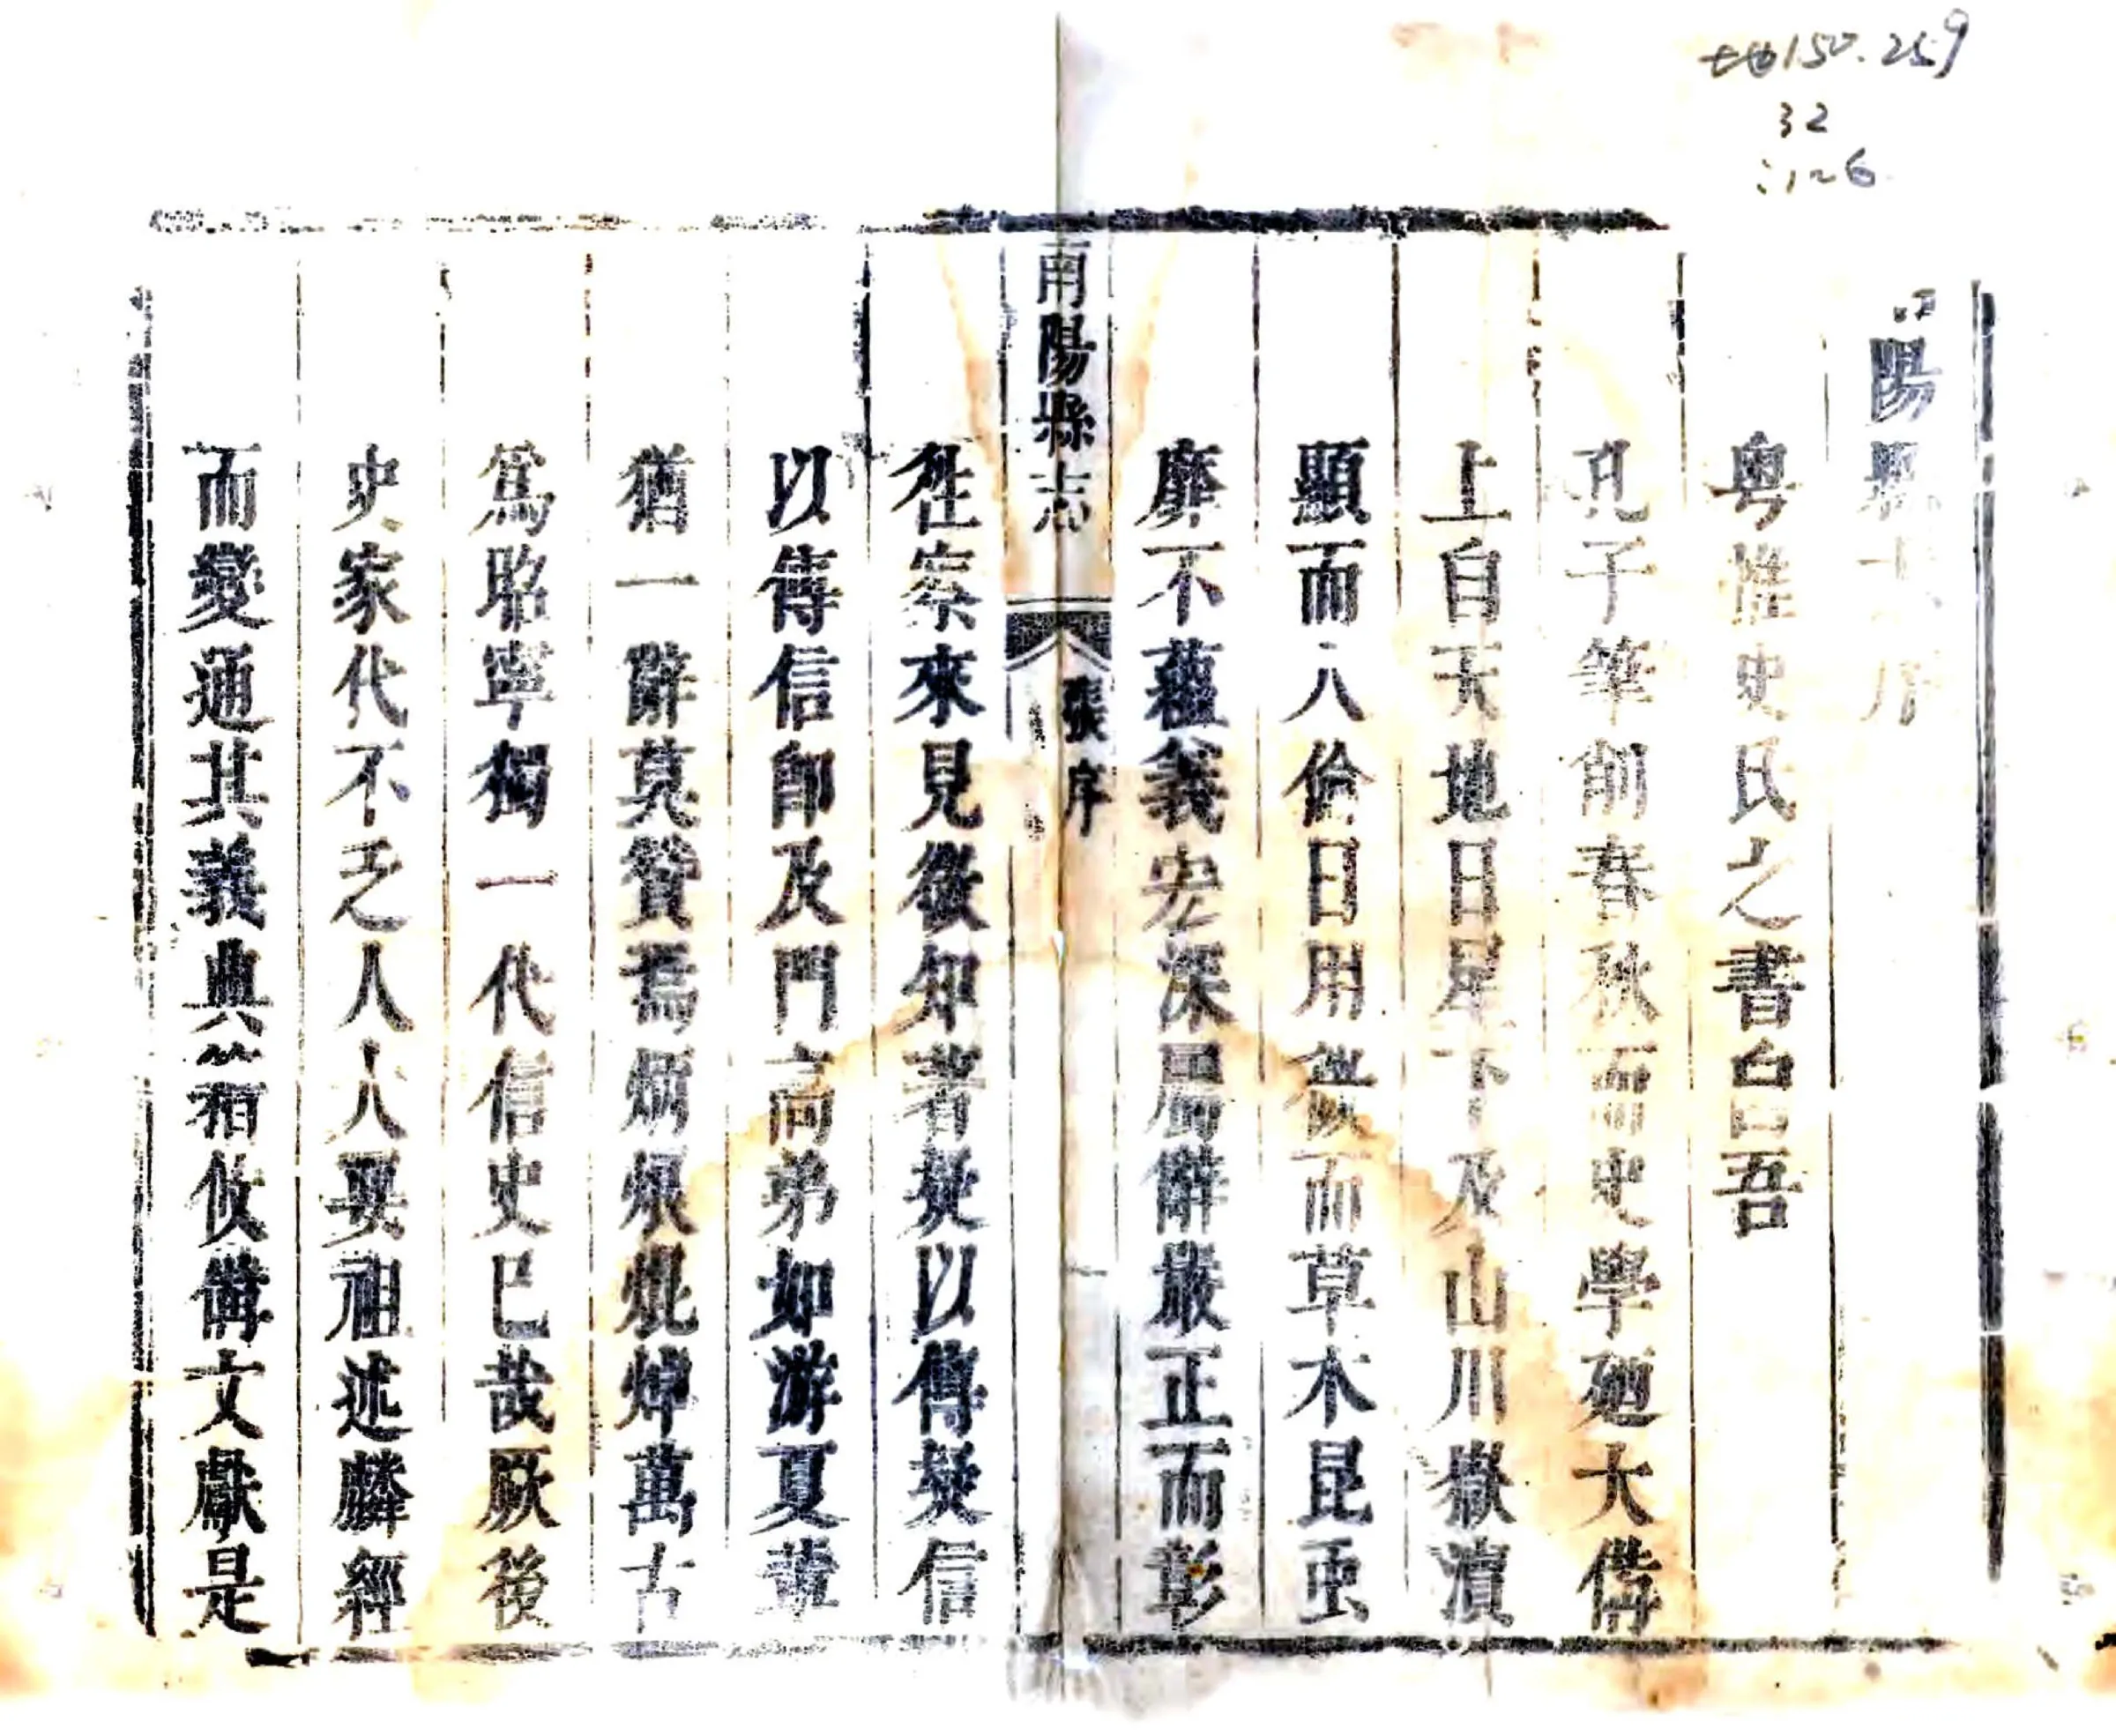 地150.259
32
:1~6
陽縣志序
粤惟史氏之書自吾
孔子筆削春秋而史學廼大備
上自天地日星下及山川嶽瀆
顯而人倫日用微而草木昆虫
靡不蘊義宏深屬辭嚴正而彰
南陽縣志
張序
一
徃察來見微知著焚以傳焚信
以傳信即及門高弟如游夏輩
猶一辭莫贊焉炳烺焜燁萬古
爲昭寧獨一代信史已哉厥後
史家代不乏人人要祖述麟經
而變通其義典籍攸備文獻是